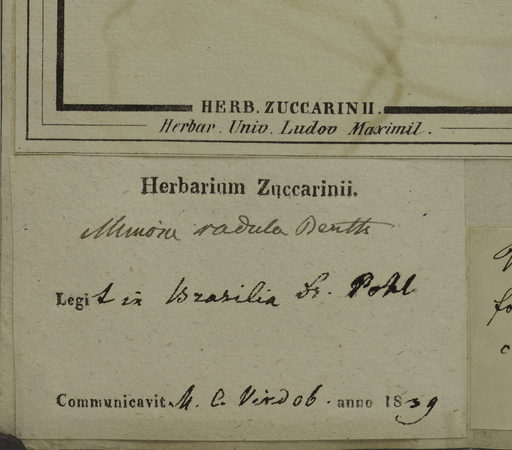 HERB. ZUCCARINII.
Herbar. Univ. Ludov Maximil.
Herbarium Zuccarinii.
Mimosa radula Benth
Legit in Brasilia Dr. Pohl
Communicavit M. C. Vindob. anno 1839